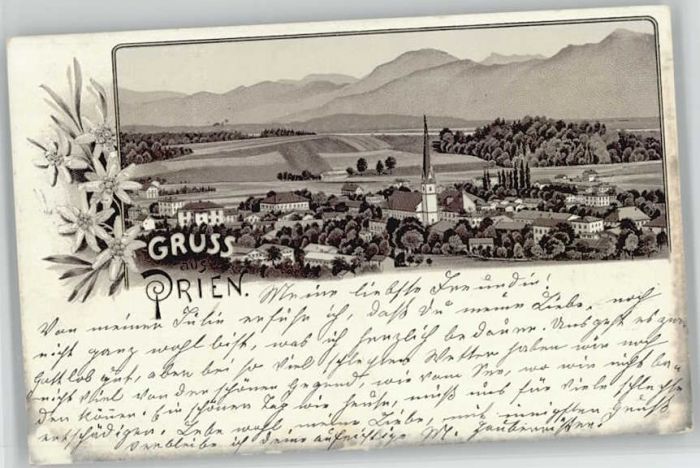 GRUSS
aus
PRIEN.
Meine liebste Freundin!
Von meiner Julie erfuhr ich, daß Du meine Liebe, noch
nicht ganz wohl bist, was ich herzlich bedauere. Uns geht es zwar
Gottlob gut, aber bei so viel schlechtem Wetter haben wir noch
nicht viel von der schönen Gegend, wie vom See, wo wir nicht ba-
den können. Ein schöner Tag wie heute, muß uns für viele schlechte
entschädigen. Lebe wohl meine Liebe, mit Gruß
verbleibe ich deine aufrichtige M.